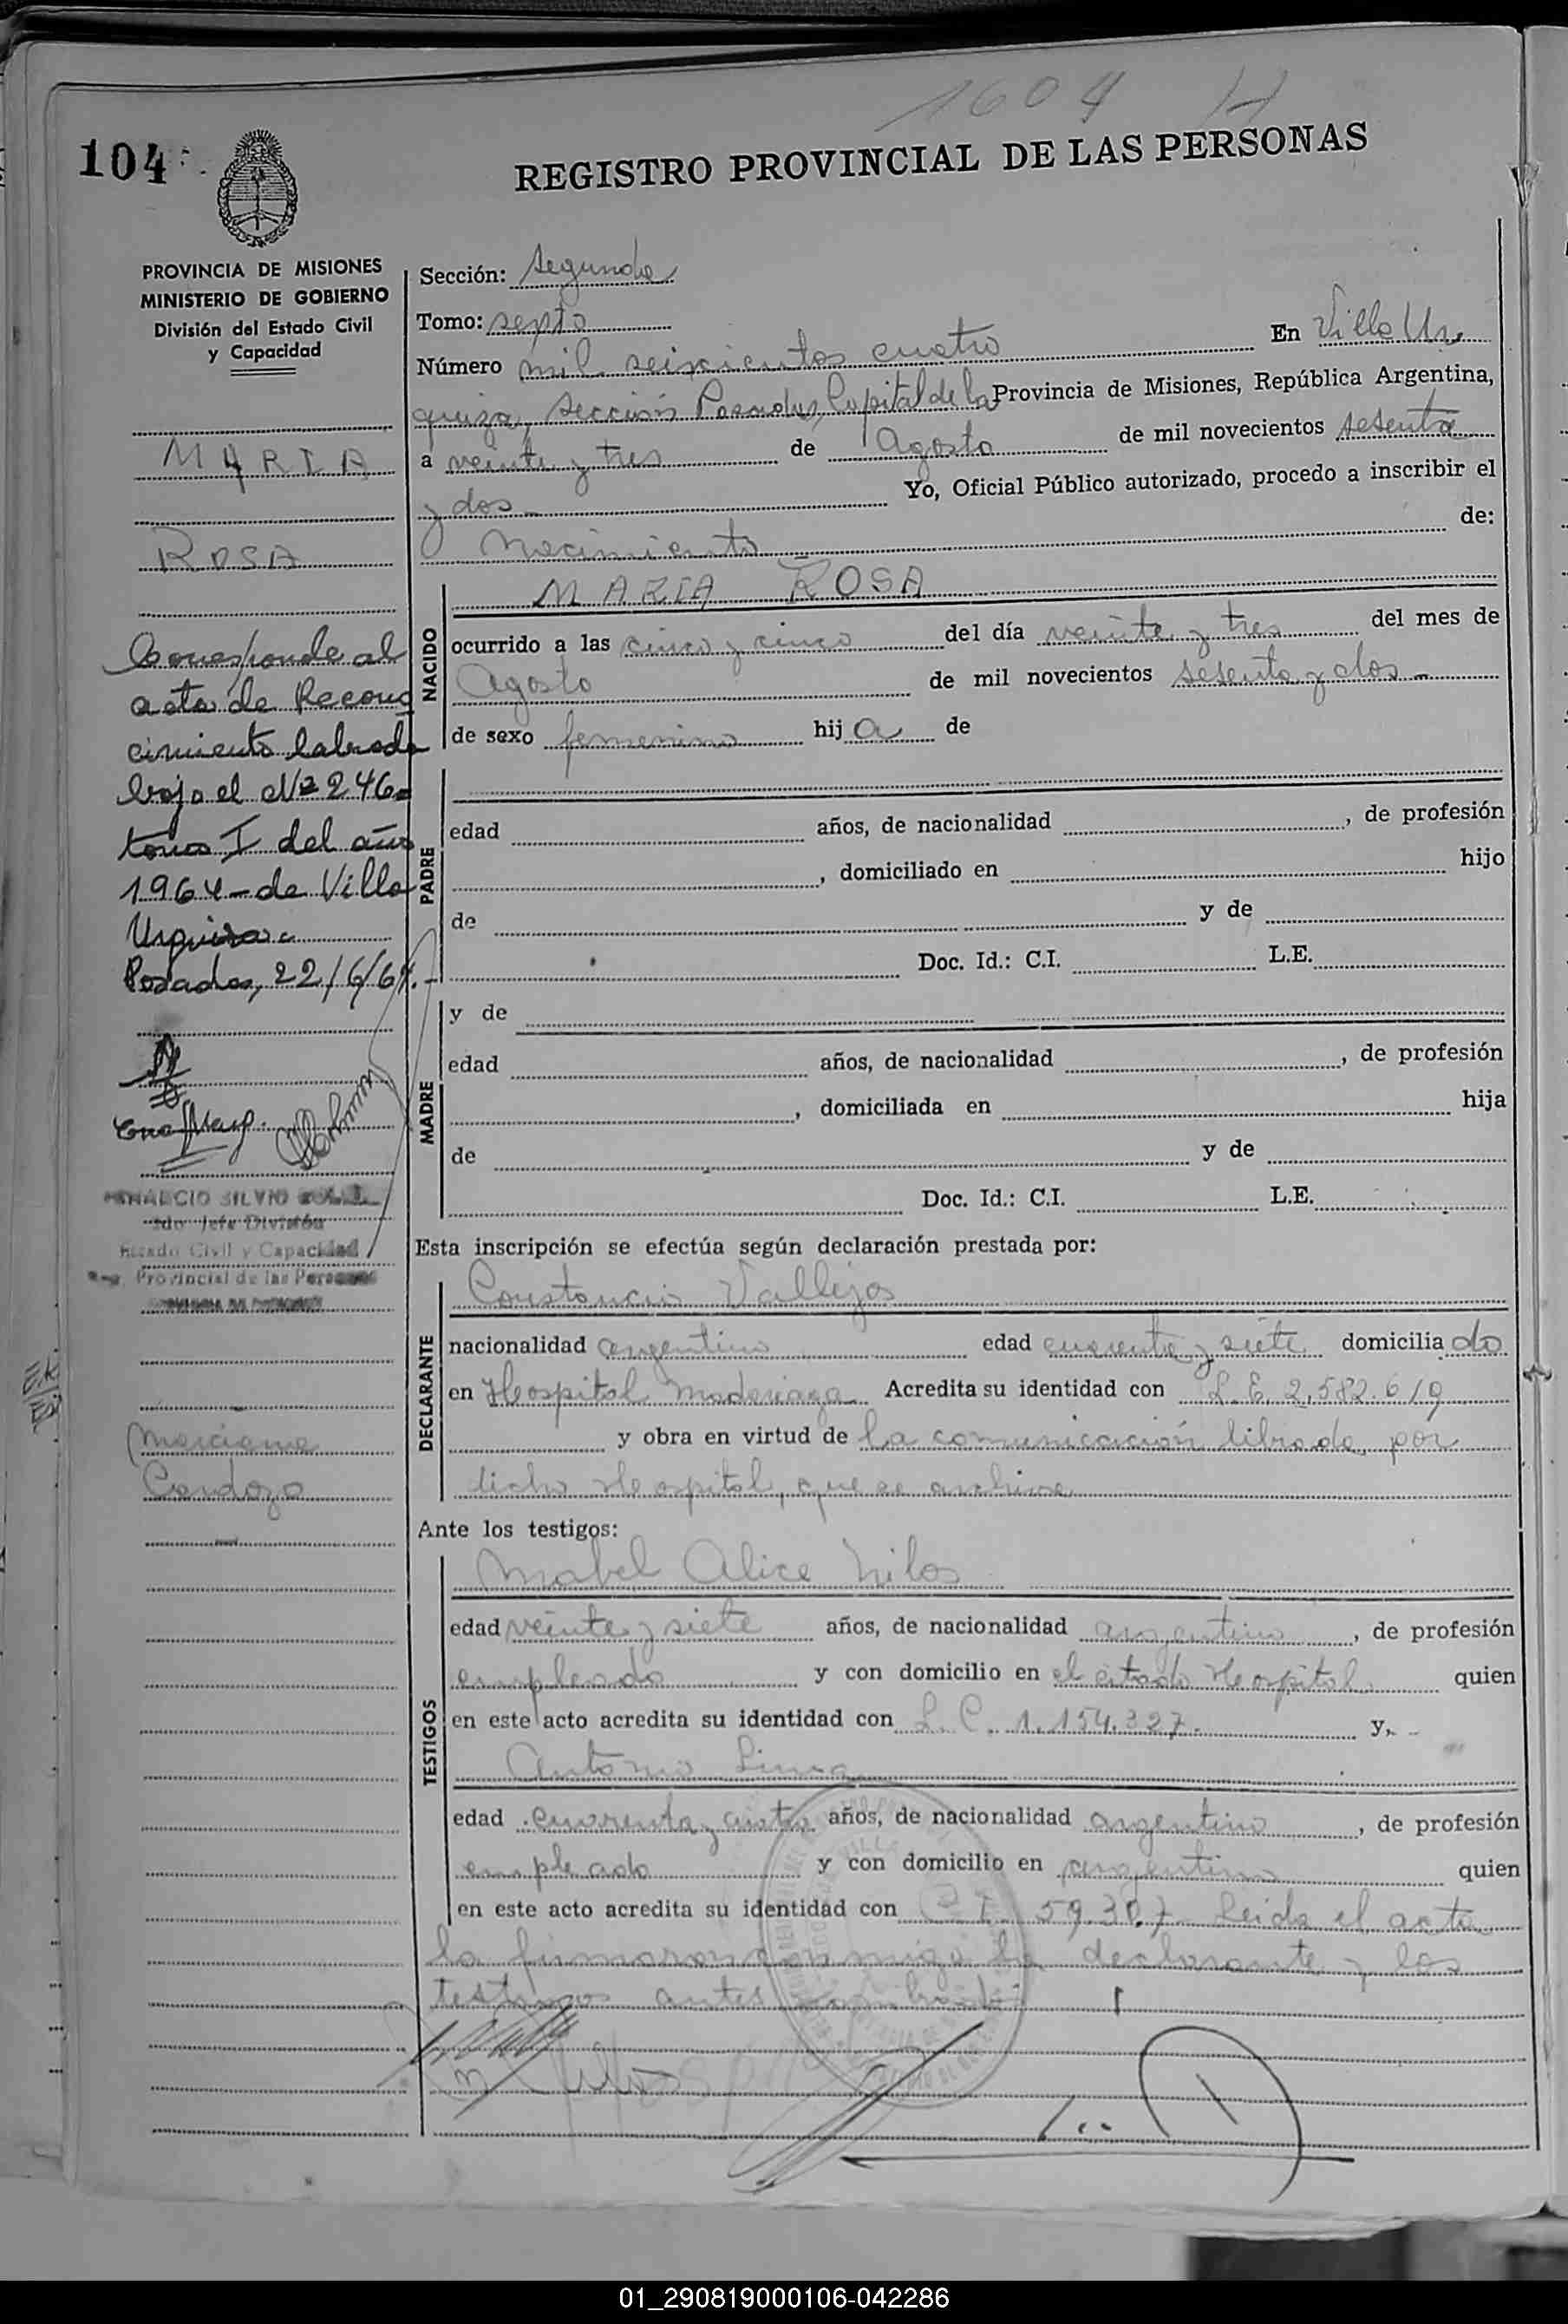 1604 H
104
REGISTRO PROVINCIAL DE LAS PERSONAS
PROVINCIA DE MISIONES
MINISTERIO DE GOBIERNO
División del Estado Civil
y Capacidad
MARIA
ROSA
Corresponde al
acta de Recono
cimiento labrada
bajo el Nº 246-
tomo I del año
1964- de Villa
Urquiza.-
Posadas, 22/6/64.-
SILVIO
2do Jefe División
Estado Civil y Capacidad
Reg. Provincial de las Personas
Marciana
Cardozo
Sección: Segunda
Tomo: septo
Número mil seiscientos cuatro En Villa Ur
quiza, Sección Posadas, Capital de la Provincia de Misiones, República Argentina,
a veinte y tres de Agosto de mil novecientos sesenta
y dos- Yo, Oficial Público autorizado, procedo a inscribir el
Nacimiento de:
NACIDO
MARIA ROSA
ocurrido a las cinco y cinco del día veinte y tres del mes de
Agosto de mil novecientos sesenta y dos-
de sexo femenino hija de
PADRE
edad años, de nacionalidad , de profesión
, domiciliado en hijo
de y de
Doc. Id.: C.I. L.E.
MADRE
y de
edad años, de nacionalidad , de profesión
, domiciliada en hija
de y de
Doc. Id.: C.I. L.E.
Esta inscripción se efectúa según declaración prestada por:
DECLARANTE
Constancio Vallejos
nacionalidad argentino edad cuarenta y siete domiciliado
en Hospital Madariaga Acredita su identidad con L.E. 2,582.619
y obra en virtud de la comunicación librada por
dicho Hospital, que se archiva
Ante los testigos:
TESTIGOS
Mabel Alice Milos
edad veinte y siete años, de nacionalidad argentina, de profesión
empleada y con domicilio en el citado Hospital quien
en este acto acredita su identidad con L.C. 1.154.327. y,-
Antonio Lima
edad cuarenta y cuatro años, de nacionalidad argentino, de profesión
empleado y con domicilio en argentino quien
en este acto acredita su identidad con C I 59.307 Leida el acta
la firmaron conmigo la declarante y los
testigos antes nombrados
01_290819000106-042286